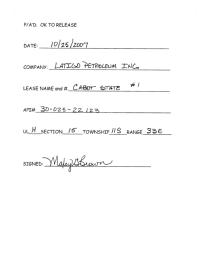 P/AD. OK TO RELEASE
DATE: 10/25/2007
COMPANY: LATIGO PETROLEUM INC.
LEASE NAME and #. CABOT STATE #1
API# 30-025-22123
UL H SECTION 15 TOWNSHIP 11S RANGE 33E
SIGNED